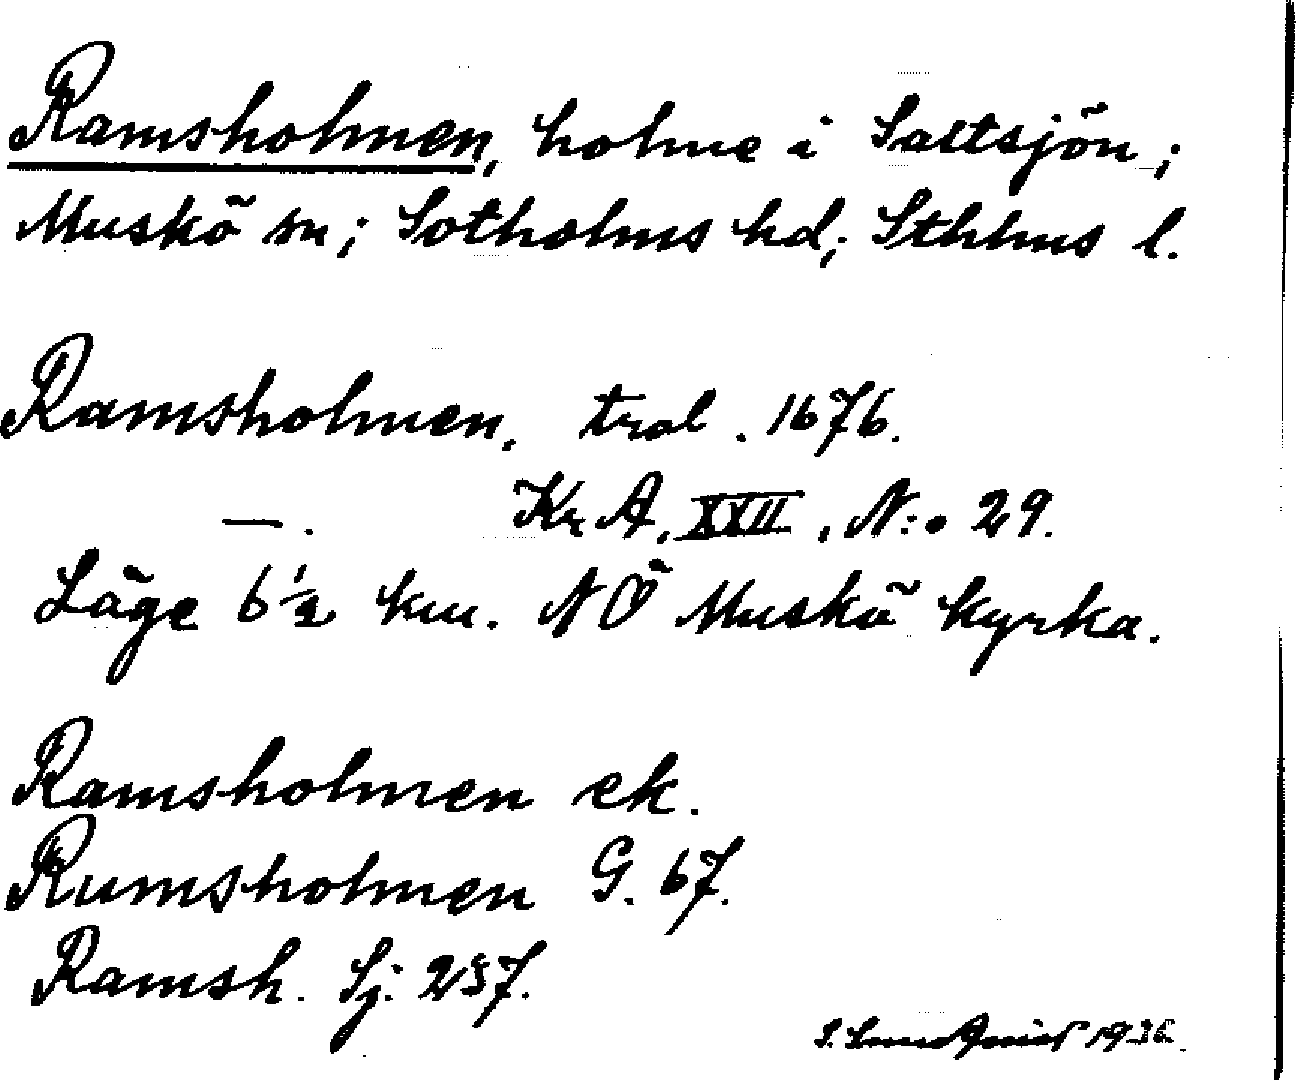 Ramsholmen, holme i Saltsjön;
Muskö sn; Sotholms hd; Sthlms l.
Ramsholmen. tral. 1676.
—. Kr A, XXII, N:o 29.
Läge 6 1/2 km. NÖ Muskö kyrka.
Ramsholmen ek.
Rumsholmen G. 67.
Ramsh. Sj. 257.
S. 1936.